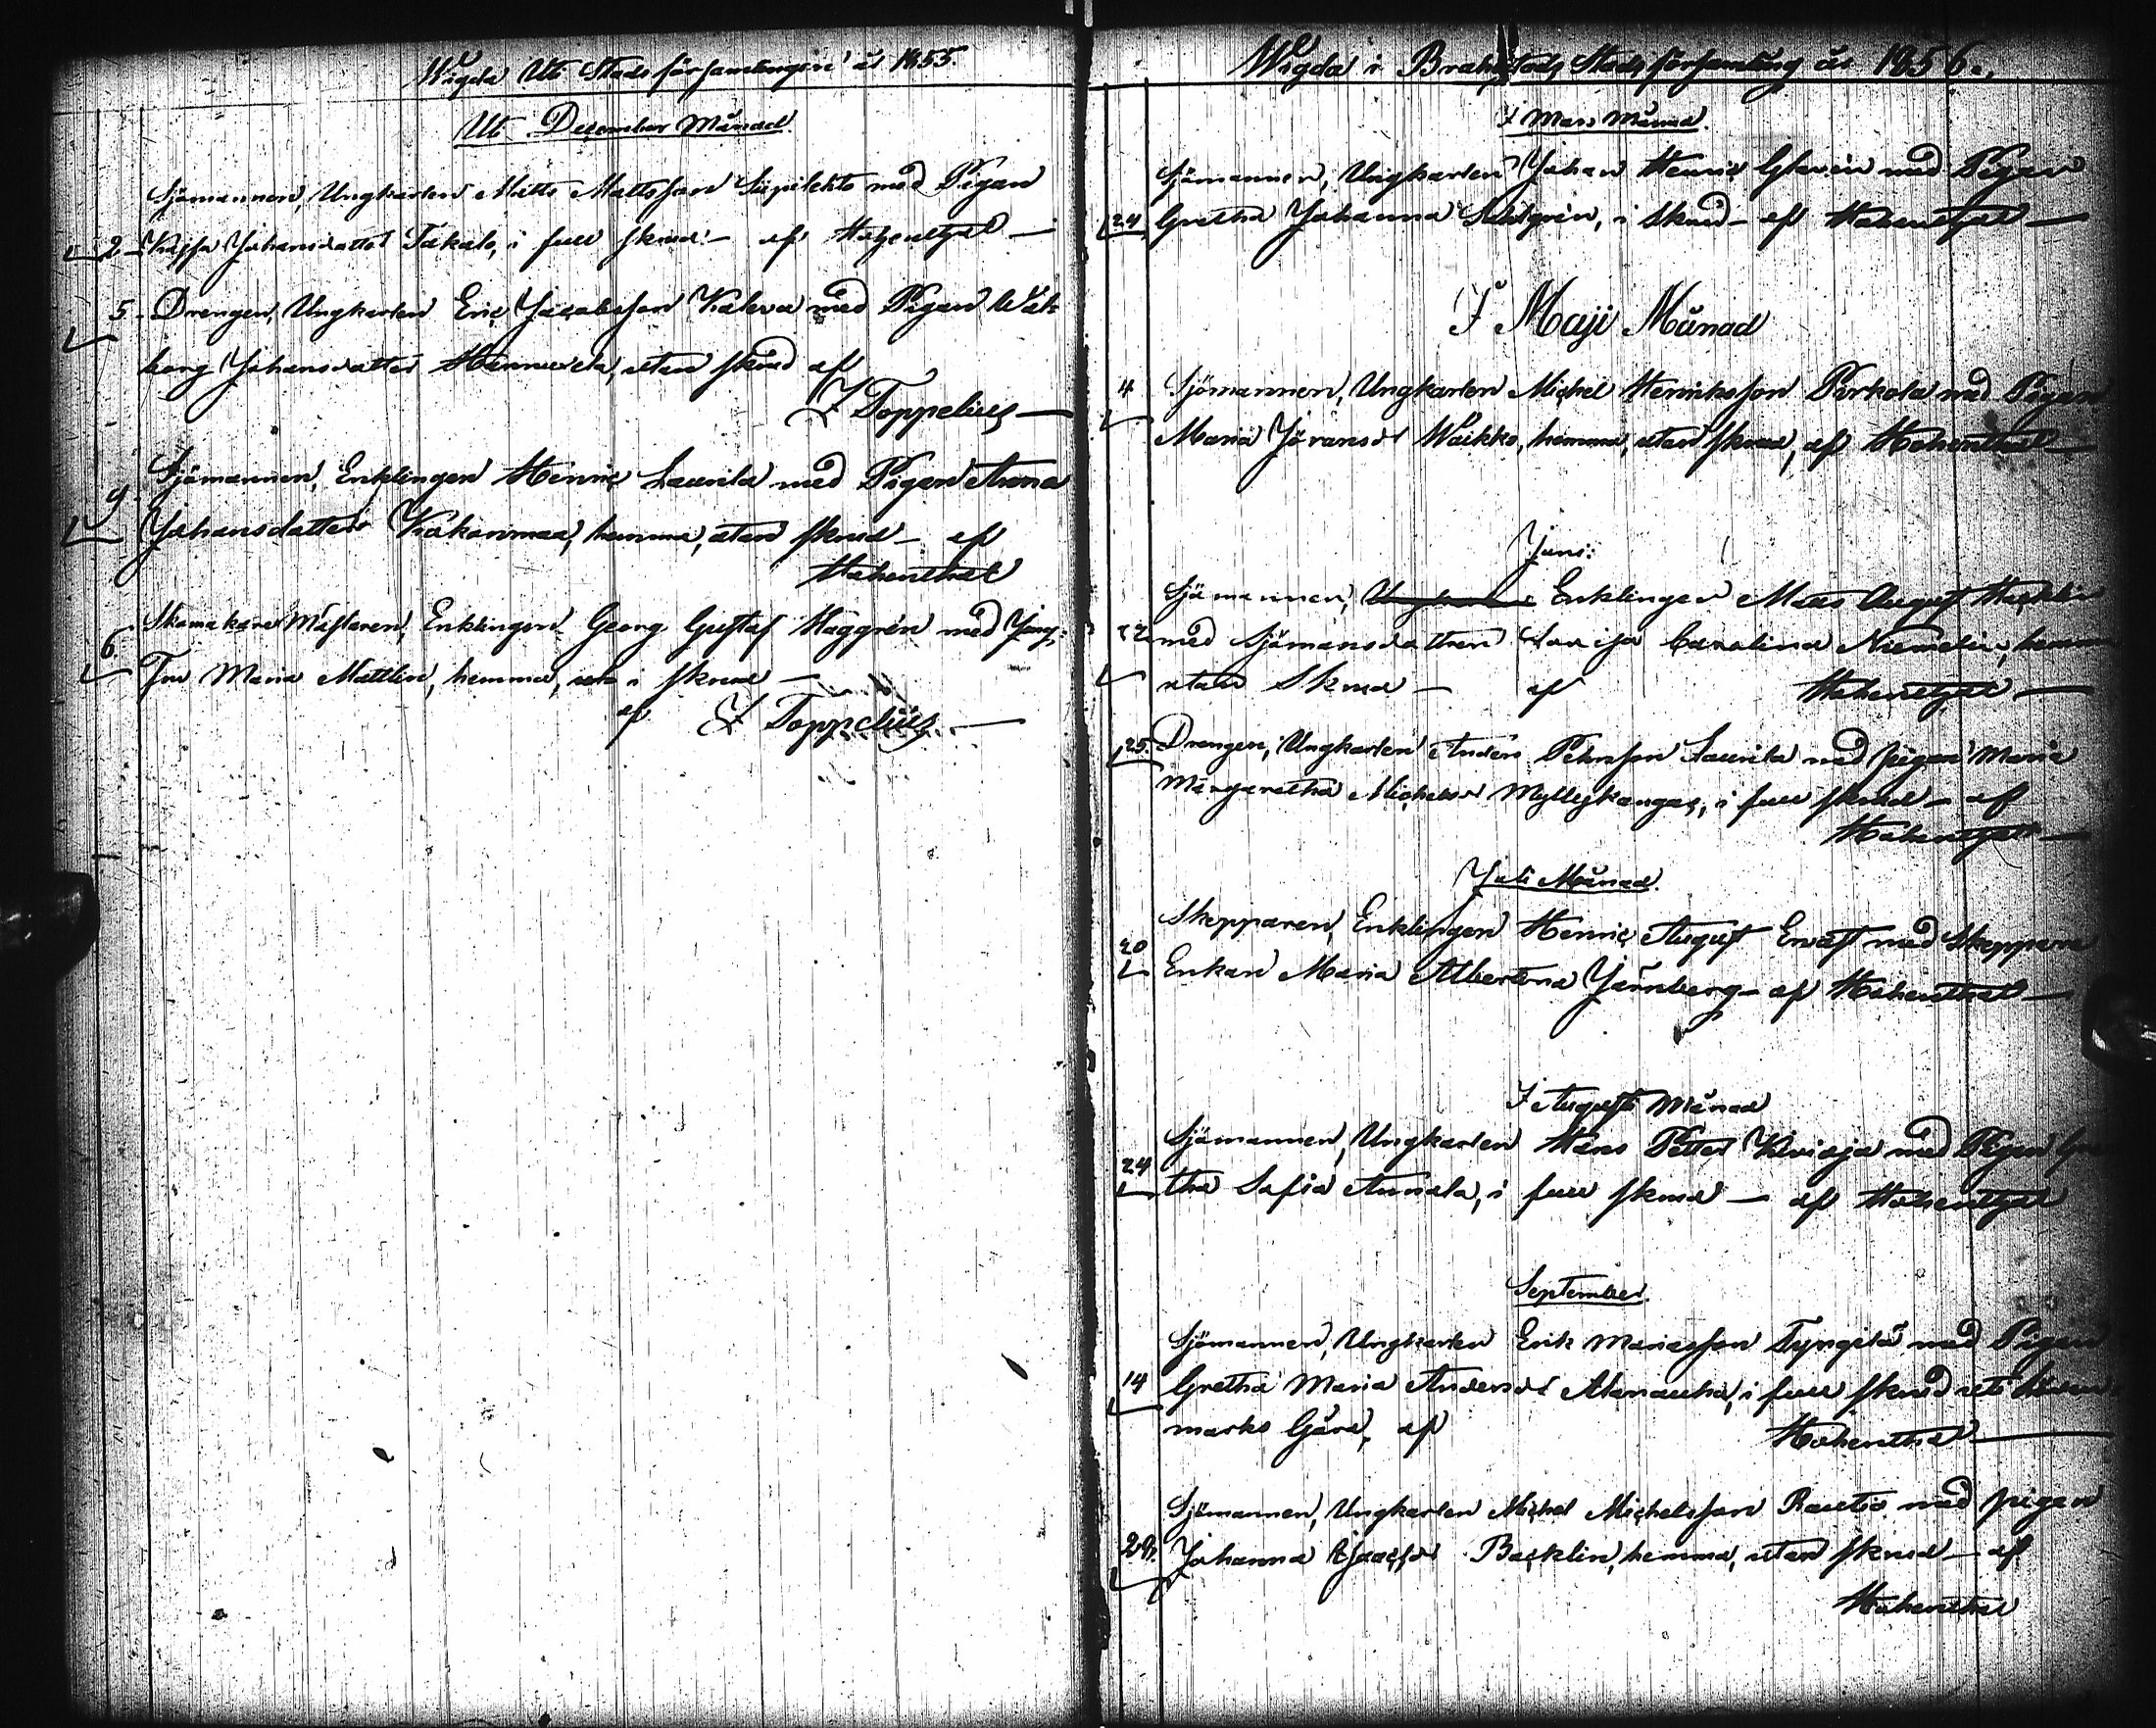 Wigda Uti Stadsförsamlingen år 1855.
Uti December Månad.
Sjömannen, Ungkarlen Matts Mattsson Siipilehto med Pigan
2 Kajsa Johansdotter Takalo, i full skrud - af Hohenthal
5. Drengen, Ungkarlen Eric Jacobsson Kaleva med Pigan Wal-
borg Johansdotter, utan skrud af
F Toppelius
Sjömannen, Enklingen Henric Laurila med Pigan Anna
9 Johansdotter Kakonmaa, hemma, utan skrud - af
Hohenthal
Skomakare Mästaren, Enklingen Georg Gustaf Häggrén med Jung-
6 frun Maria Mattlin, hemma, i skrud
af F Toppelius
Wigda i Brahestads Stads församling år 1856.
I Mars Månad.
Sjömannen, Ungkarlen Johan Henric med Pigan
24 Gretha Johanna, i Skrud - af Hohenthal
I Maji Månad
4 Sjömannen, Ungkarlen Michel Henriksson Pirkola med Pigan
Maria Jöransdr Waikko, hemma, utan skrud, af Hohenthal
Juni:
Sjömannen, Enklingen Matts August
22 med Sjömansdottren Lovisa Carolina Niemelin, hemma
utan Skrud - af Hohenthal
25. Drengen, Ungkarlen Anders Petersson Laurila med pigan Maria
Margaretha Michelsdr Myllykangas, i full skrud - af
Hohenthal
Juli Månad.
Skepparen, Enklingen Henric August Ervast med Skeppare
20 Enkan Maria Albertina Jernberg - af Hohenthal
I Augusti Månad
Sjömannen, Ungkarlen Hans Petter Kivioja med Pigan Gre
24 tha Sofia Annala, i full skrud - af Hohenthal
September.
Sjömannen, Ungkarlen Erik Mariasson Tyngilä med Pigan
14 Gretha Maria Andersdr, i full skrud uti
marks Gård, af Hohenthal
Sjömannen, Ungkarlen Michel Michelsson Rautio med pigan
28. Johanna Isacsdr Backlin, hemma, utan skrud - af
Hohenthal